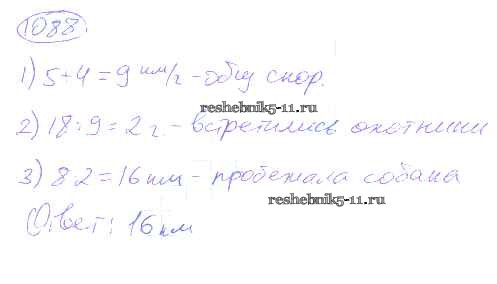 1088.
1) 5+4=9 км/г - общ скор.
reshebnik5-11.ru
2) 18:9=2 г. - встретились охотники
3) 8·2=16 км - пробежала собака
reshebnik5-11.ru
Ответ: 16 км